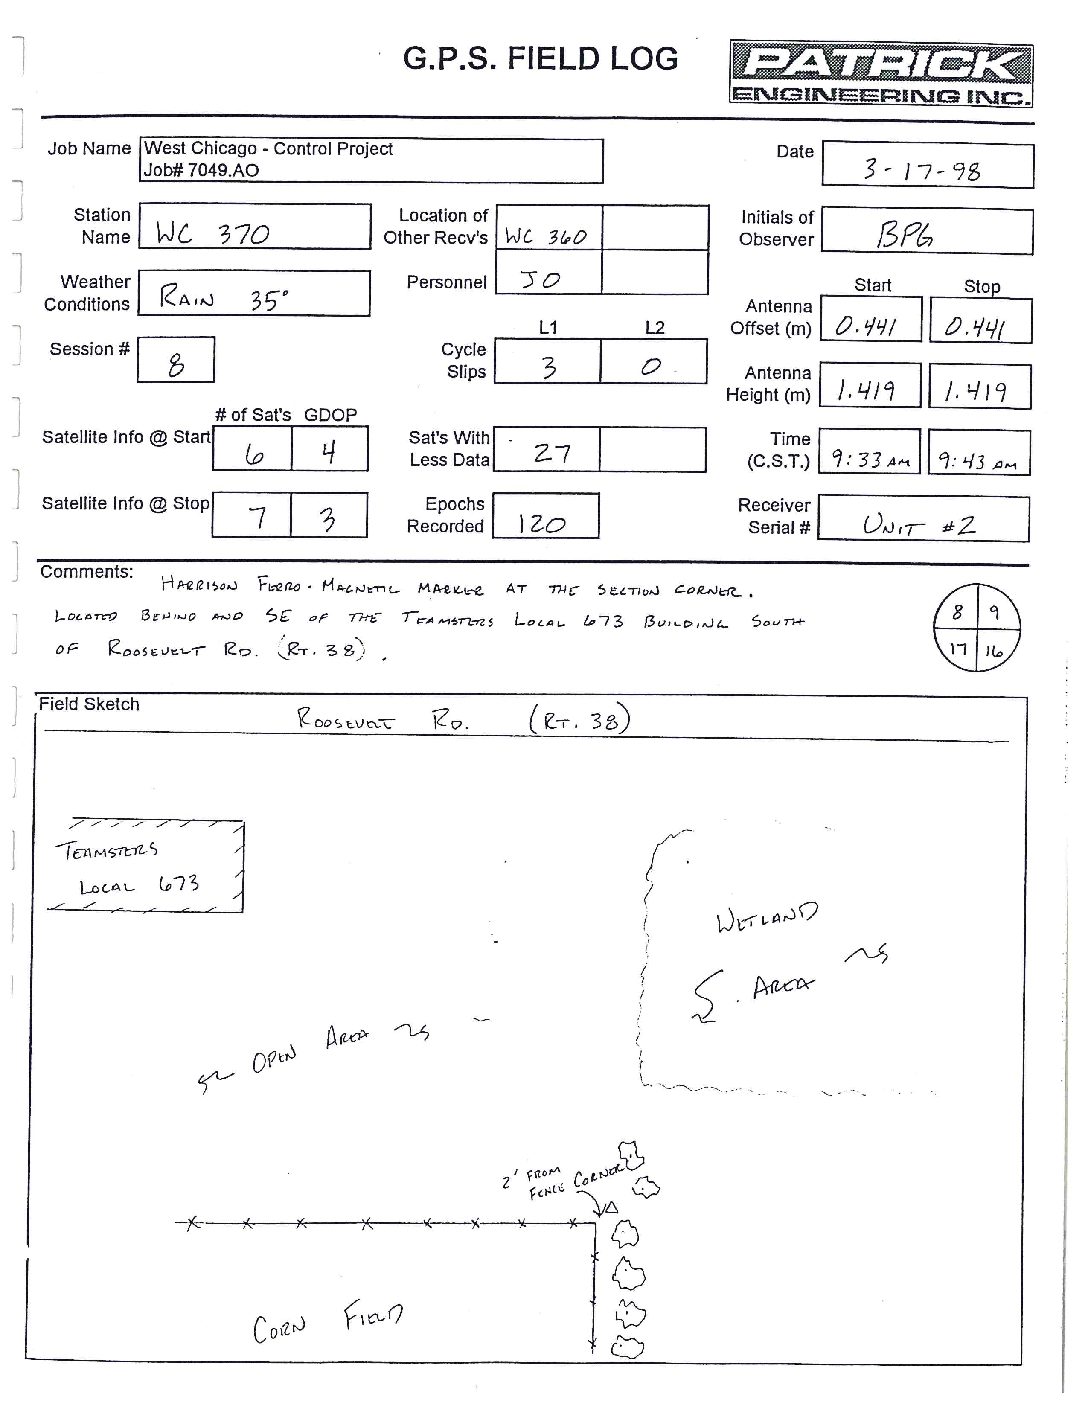 G.P.S. FIELD LOG
PATRICK
ENGINEERING INC.
Job Name West Chicago - Control Project
Job# 7049.AO
Date 3-17-98
Station Name WC 370
Location of Other Recv's WC 360
Initials of Observer BPG
Weather Conditions RAIN 35°
Personnel JO
Start Stop
Antenna Offset (m) 0.441 0.441
Session # 8
L1 L2
Cycle Slips 3 0
Antenna Height (m) 1.419 1.419
# of Sat's GDOP
Satellite Info @ Start 6 4
Sat's With Less Data 27
Time (C.S.T.) 9:33 AM 9:43 AM
Satellite Info @ Stop 7 3
Epochs Recorded 120
Receiver Serial # UNIT #2
Comments: HARRISON FERRO-MAGNETIC MARKER AT THE SECTION CORNER.
LOCATED BEHIND AND SE OF THE TEAMSTERS LOCAL 673 BUILDING SOUTH
OF ROOSEVELT RD. (RT. 38).
8 9
17 16
Field Sketch
ROOSEVELT RD. (RT. 38)
TEAMSTERS
LOCAL 673
WETLAND
AREA
OPEN AREA
2' FROM
FENCE CORNER
CORN FIELD